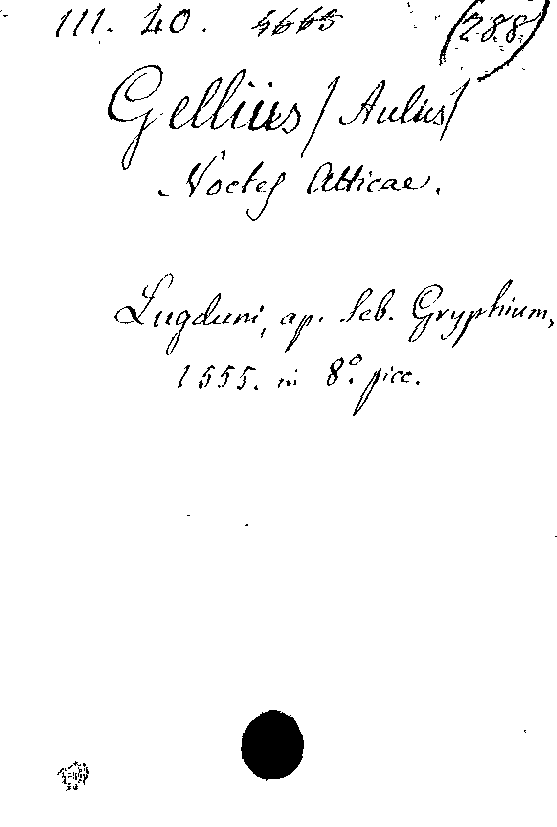 III. 40. 5663 (288)
Gellius / Aulus /
Noctes Atticae.
Lugduni, ap. Seb. Gryphium,
1555. in 8.º picc.